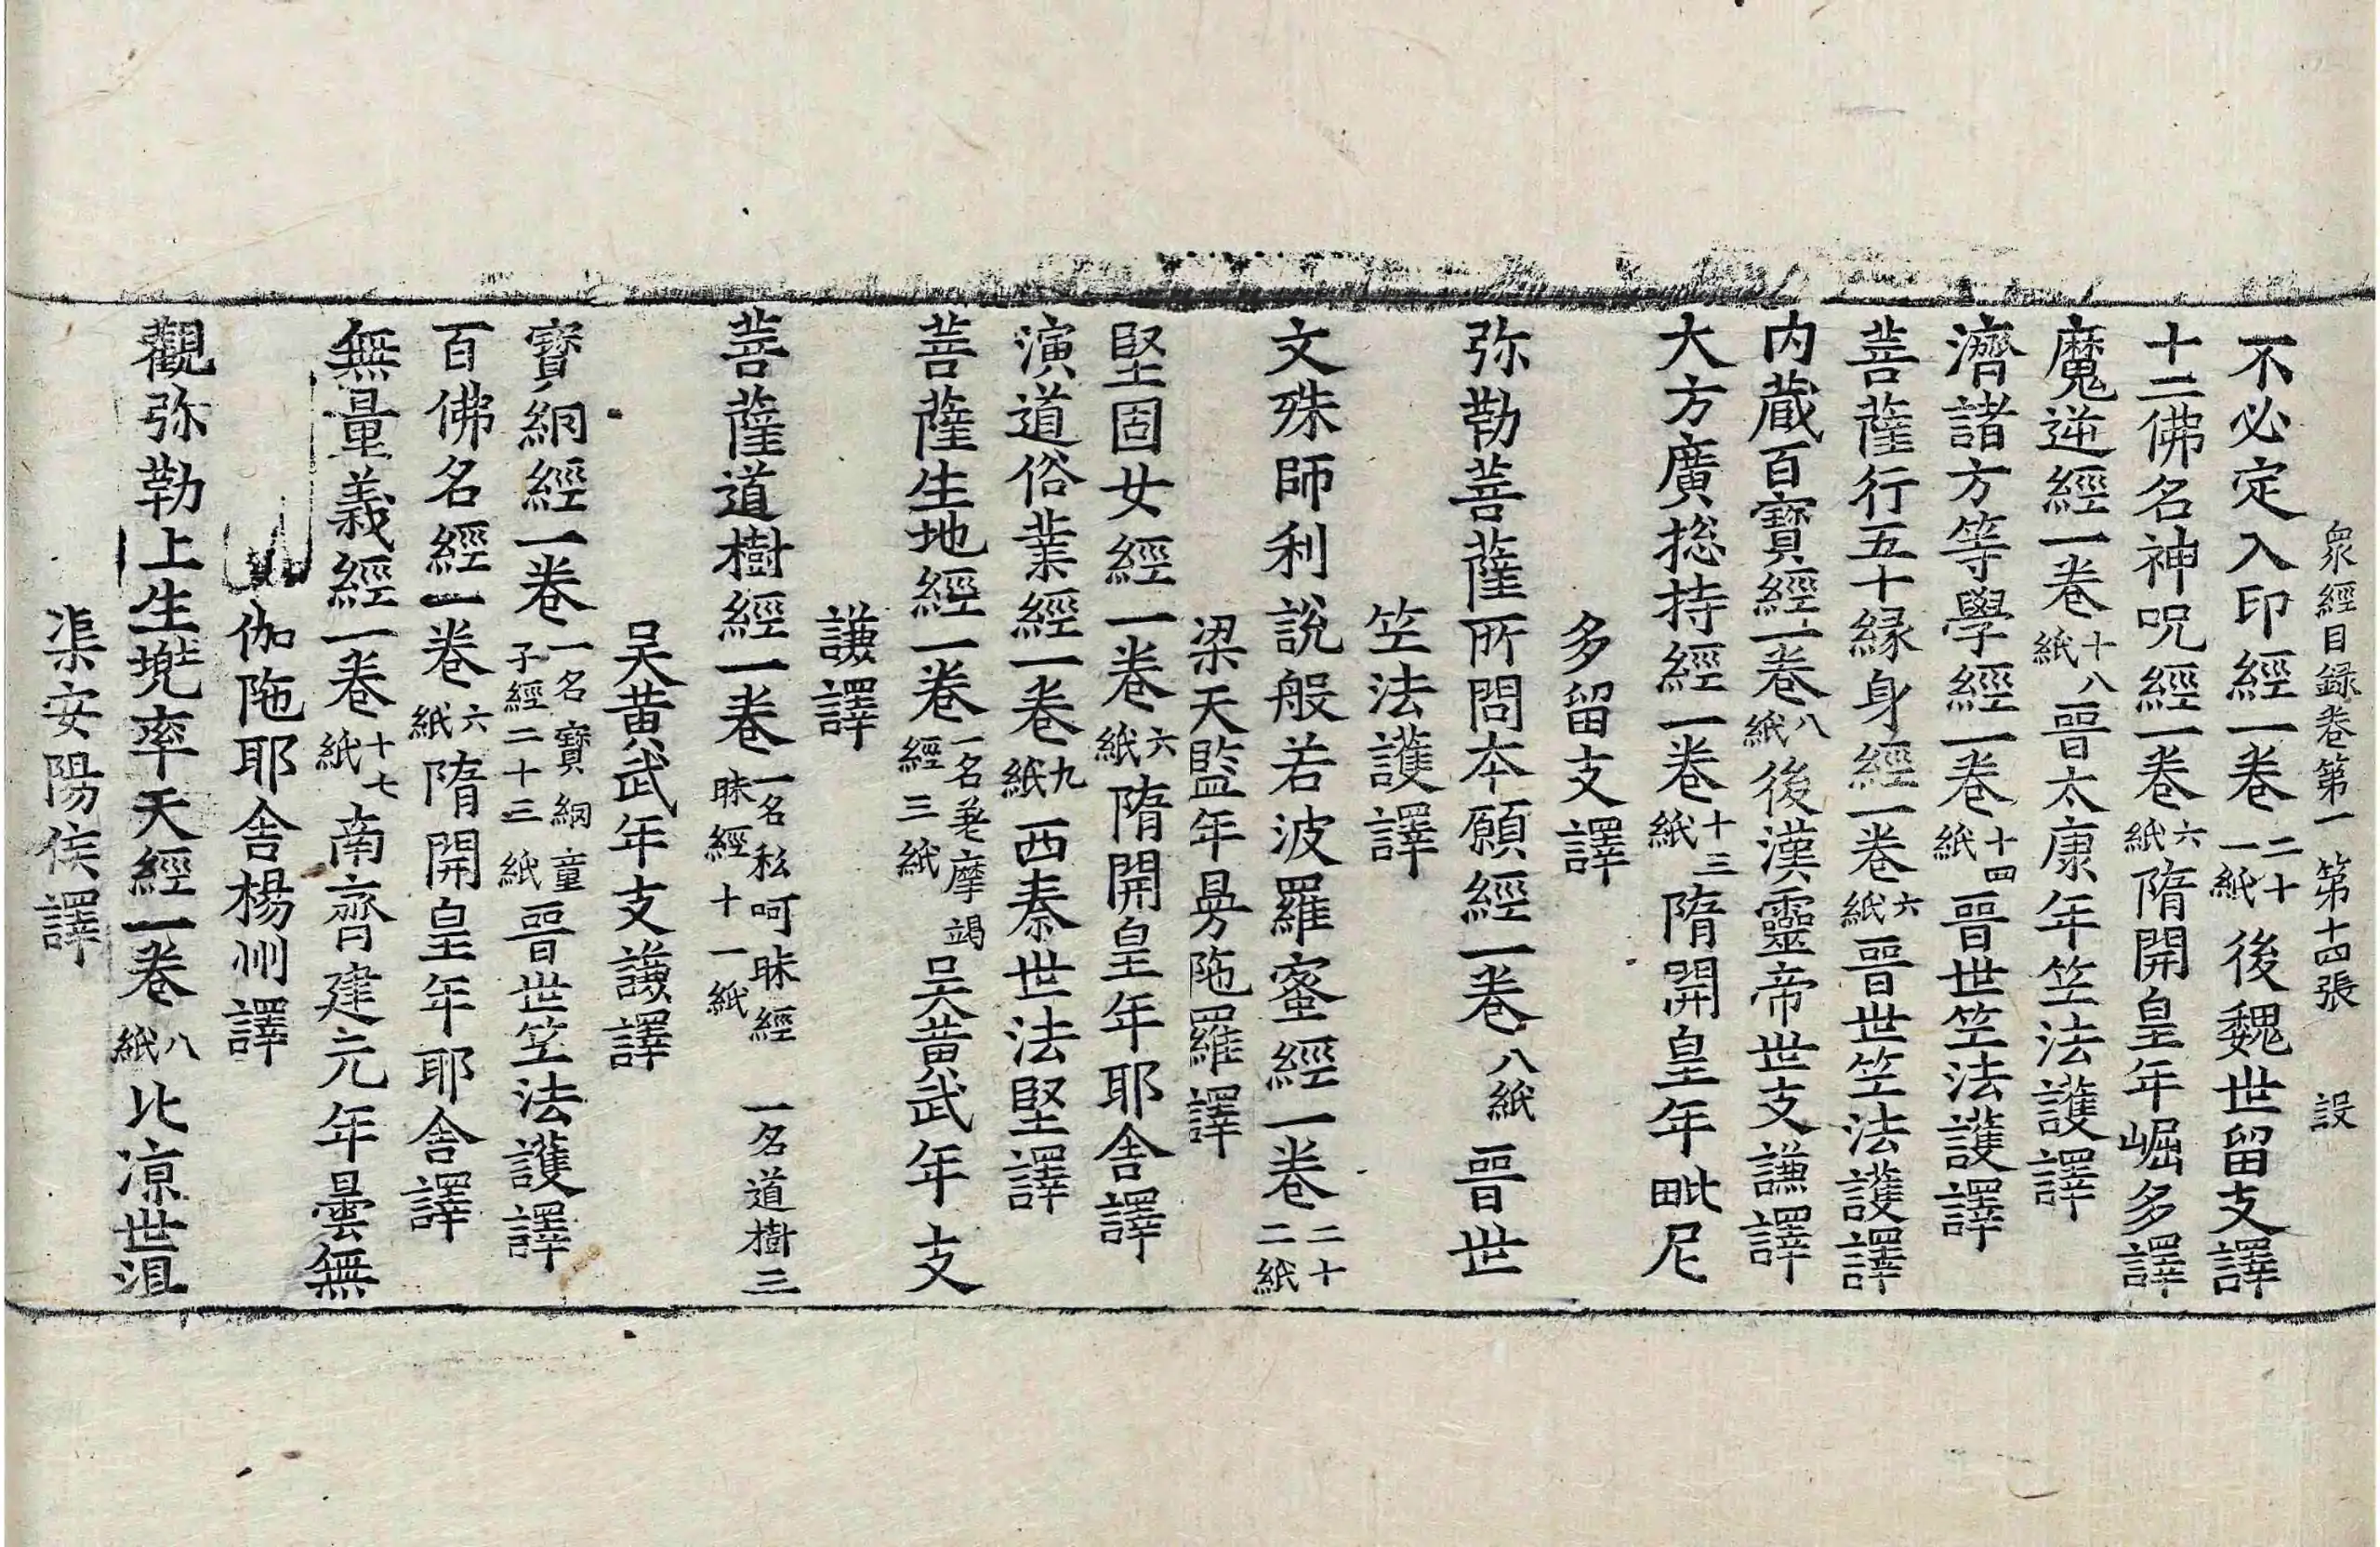 衆經目録卷第一 第十四張 設
不必定入印經一卷二十一紙後魏世留支譯
十二佛名神呪經一卷六紙隋開皇年崛多譯
魔逆經一卷十八紙晉太康年竺法護譯
濟諸方等學經一卷十四紙晉世竺法護譯
菩薩行五十緣身經一卷六紙晉世竺法護譯
内蔵百寶經一卷八紙後漢靈帝世支謙譯
大方廣捴持經一卷十三紙隋開皇年毗尼
多留支譯
弥勒菩薩所問本願經一卷八紙晉世
竺法護譯
文殊師利說般若波羅蜜經一卷二十二紙
梁天監年曼陁羅譯
堅固女經一卷六紙隋開皇年耶舎譯
演道俗業經一卷九紙西秦世法堅譯
菩薩生地經一卷一名差摩竭經三紙吴黄武年支
謙譯
菩薩道樹經一卷一名私呵昧經 一名道樹三昧經十一紙
吴黄武年支謙譯
寶網經一卷一名寶網童子經二十三紙晉世竺法護譯
百佛名經一卷六紙隋開皇年耶舎譯
無量義經一卷十七紙南齊建元年曇無
伽陁耶舎楊州譯
觀弥勒上生兠率天經一卷八紙北涼世沮
渠安陽侯譯